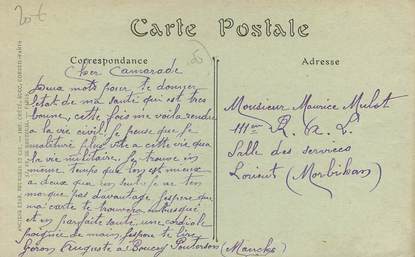 20 €
Carte Postale
Correspondance
Adresse
Cher Camarade
Deux mots pour te donner
l'état de ma santé qui est très
bonne, cette fois me voilà rendu
à la vie civil. Je pense que je
m'
plus vite a cette vie que
la vie militaire. Je trouve in
meme temps que l'on est mieux
a deux que
seul. je ne t'en
marque pas davantage j'espere que
ma carte te trouvera
et en parfaite santé, une cordiale
poignée de main, j'espere te lire
Auguste à Boucey Pontorson (Manche)
Monsieur Maurice Mulot
111eme R. A. L.
Salle des services
Lorient (Morbihan)